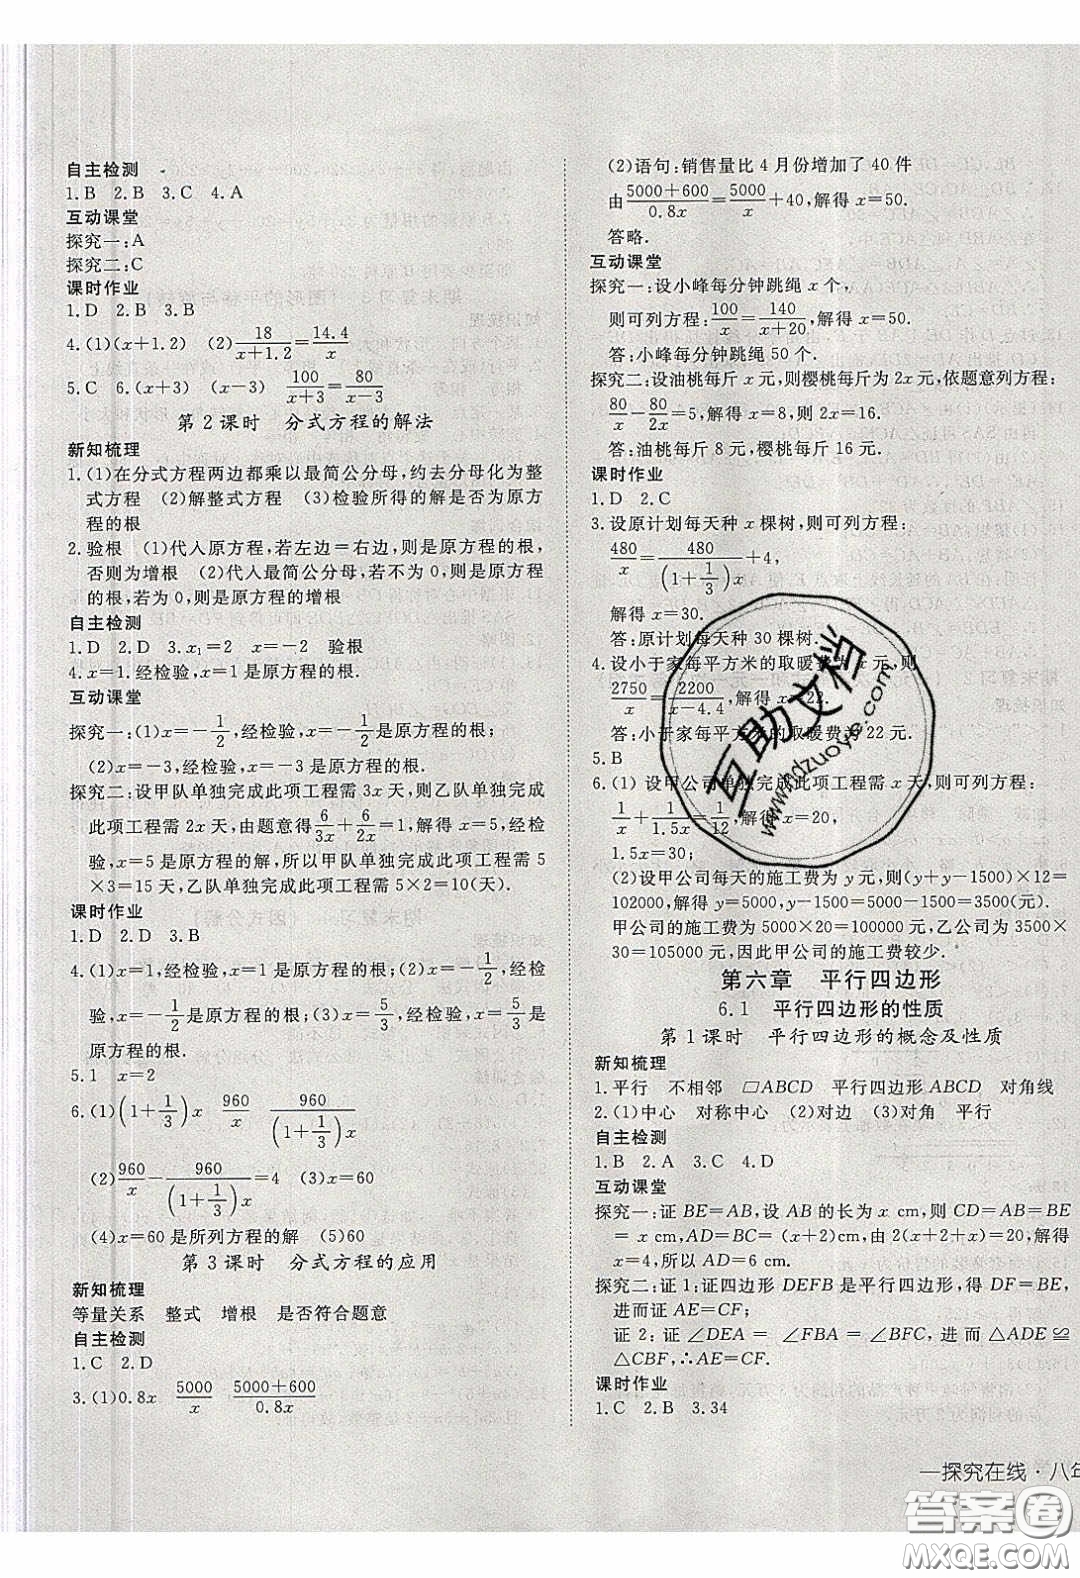 自主检测
1.B 2.B 3.C 4.A
互动课堂
探究一:A
探究二:C
课时作业
1.D 2.B 3.B
4.(1)(x+1.2) (2)18/(x+1.2)=14.4/x
5.C 6.(x+3) (x-3) 100/(x+3)=80/(x-3)
第 2 课时 分式方程的解法
新知梳理
1.(1)在分式方程两边都乘以最简公分母,约去分母化为整
式方程 (2)解整式方程 (3)检验所得的解是否为原方
程的根
2.验根 (1)代人原方程,若左边=右边,则是原方程的根,
否则为增根 (2)代人最简公分母,若不为0,则是原方程
的根,若为0,则是原方程的增根
自主检测
1.D 2.D 3.x₁=2 x=-2 验根
4.x=1.经检验,x=1是原方程的根.
互动课堂
探究一:(1)x=-1/2,经检验,x=-1/2是原方程的根;
(2)x=-3.经检验,x=-3是原方程的根.
探究二:设甲队单独完成此项工程需3x天,则乙队单独完成
此项工程需2x天,由题意得6/3x+6/2x=1,解得x=5,经检
验,x=5是原方程的解,所以甲队单独完成此项工程需5
×3=15天,乙队单独完成此项工程需5×2=10(天).
课时作业
1.D 2.D 3.B
4.(1)x=1,经检验,x=1是原方程的根;(2)x=-1/2,经检
验,x=-1/2是原方程的根;(3)x=5/3,经检验,x=5/3是
原方程的根.
5.1 x=2
6.(1)(1+1/3)x 960/x 960/((1+1/3)x)
(2)960/x-960/((1+1/3)x)=4 (3)x=60
(4)x=60是所列方程的解 (5)60
第 3 课时 分式方程的应用
新知梳理
等量关系 整式 增根 是否符合题意
自主检测
1.C 2.D
3.(1)0.8x 5000/x (5000+600)/0.8x
(2)语句:销售量比4月份增加了40件
由(5000+600)/0.8x=5000/x+40,解得x=50.
答略.
互动课堂
探究一:设小峰每分钟跳绳x个,
则可列方程:100/x=140/(x+20),解得x=50.
答:小峰每分钟跳绳50个.
探究二:设油桃每斤x元,则樱桃每斤为2x元,依题意列方程:
80/x-80/2x=5,解得x=8,则2x=16.
答:油桃每斤8元,樱桃每斤16元.
课时作业
1.D 2.C
3.设原计划每天种x棵树,则可列方程:
480/x=480/((1+1/3)x)+4,
解得x=30.
答:原计划每天种30棵树.
4.设小于家每平方米的取暖费为x元,则
2750/x=2200/(x-4.4),解得x=22.
答:小于家每平方米的取暖费为22元.
5.B
6.(1)设甲公司单独完成此项工程需x天,则可列方程:
1/x+1/1.5x=1/12,解得x=20,
1.5x=30;
(2)设甲公司每天的施工费为y元,则(y+y-1500)×12=
102000,解得y=5000,y-1500=5000-1500=3500(元).
甲公司的施工费为5000×20=100000元,乙公司为3500×
×30=105000元,因此甲公司的施工费较少.
第六章 平行四边形
6.1 平行四边形的性质
第 1 课时 平行四边形的概念及性质
新知梳理
1.平行 不相邻 □ABCD 平行四边形ABCD 对角线
2.(1)中心 对称中心 (2)对边 (3)对角 平行
自主检测
1.B 2.A 3.C 4.D
互动课堂
探究一:证BE=AB,设AB的长为x cm,则CD=AB=BE
=x cm,AD=BC=(x+2)cm,由2(x+2+x)=20,解得x
=4,所以AD=6 cm.
探究二:证1:证四边形DEFB是平行四边形,得DF=BE,
进而证AE=CF;
证 2:证∠DEA=∠FBA=∠BFC,进而△ADE≌
△CBF,∴AE=CF.
课时作业
1.C 2.B 3.34
一探究在线·八年
互助文档
www.hdzuoye.com
答案圈
MXQE.COM